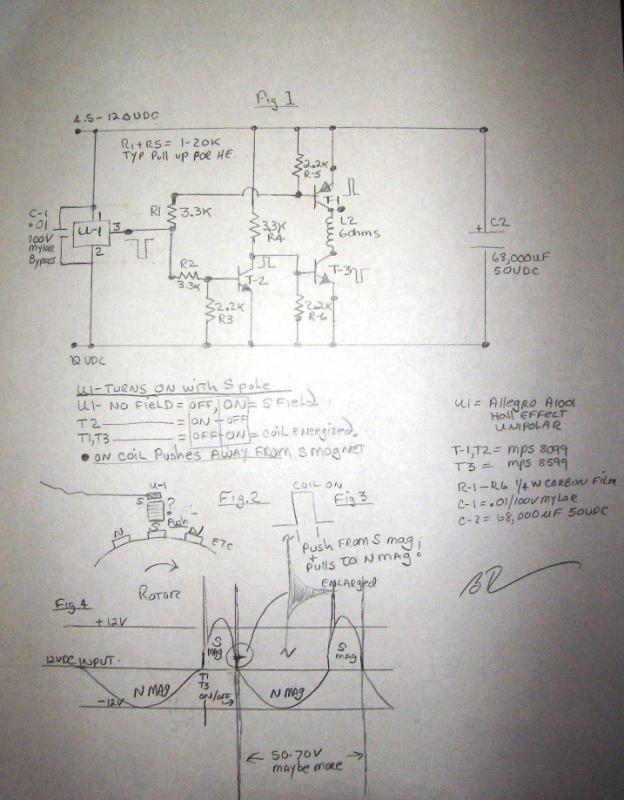 Fig 1
4.5-12 VDC
R1+R5 = 1-20K
TYP Pull up FOR HE.
2.2K
R-5
T-1
C-1
.01
100V
mylar
Bypass
U-1
1
3
2
R1
3.3K
3.3K
R4
L2
6ohms
C2
+
68,000uF
50VDC
R2
3.3K
T-2
T-3
2.2K
R3
2.2K
R-6
VDC
U1-TURNS ON with S pole
U1- NO FIELD = OFF, ON = S Field
T2 = ON - OFF
T1,T3 = OFF - ON = COIL ENERGIZED.
• ON COIL PUSHES AWAY FROM S MAGNET
U1 = Allegro A1001
Hall EFFECT
UNIPOLAR
T-1,T2 = mps 8099
T3 = mps 8599
R-1-R6 1/4 W CARBON FILM
C-1 = .01/100V mylar
C-2 = 68,000uF 50VDC
U-1
S
S
?
Push
S
N
N
ETC
Fig.2
COIL ON
Fig 3
Push FROM S mag
+
Pulls TO N MAG!
ENLARGED
ROTOR
Fig 4
+12V
12VDC INPUT.
-12V
N MAG
S
mag
T1
T3
ON/OFF
N MAG
S
MAG
50-70V
maybe more